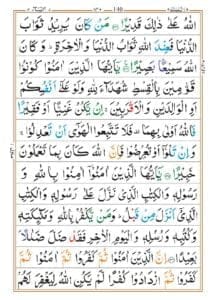 اللهُ عَلٰى ذٰلِكَ قَدِيْرًا ۝ مَنْ كَانَ يُرِيْدُ ثَوَابَ
الدُّنْيَا فَعِنْدَ اللهِ ثَوَابُ الدُّنْيَا وَالْاٰخِرَةِ ؕ وَكَانَ
اللهُ سَمِيْعًۢا بَصِيْرًا ۝ يٰۤاَيُّهَا الَّذِيْنَ اٰمَنُوْا كُوْنُوْا
قَوّٰمِيْنَ بِالْقِسْطِ شُهَدَآءَ لِلّٰهِ وَلَوْ عَلٰۤى اَنْفُسِكُمْ
اَوِ الْوَالِدَيْنِ وَالْاَقْرَبِيْنَ ۚ اِنْ يَّكُنْ غَنِيًّا اَوْ فَقِيْرًا
فَاللهُ اَوْلٰى بِهِمَا ۫ فَلَا تَتَّبِعُوا الْهَوٰۤى اَنْ تَعْدِلُوْا ۚ
وَاِنْ تَلْوٗۤا اَوْ تُعْرِضُوْا فَاِنَّ اللهَ كَانَ بِمَا تَعْمَلُوْنَ
خَبِيْرًا ۝ يٰۤاَيُّهَا الَّذِيْنَ اٰمَنُوْۤا اٰمِنُوْا بِاللهِ وَ
رَسُوْلِهٖ وَالْكِتٰبِ الَّذِيْ نَزَّلَ عَلٰى رَسُوْلِهٖ وَالْكِتٰبِ
الَّذِيْۤ اَنْزَلَ مِنْ قَبْلُ ؕ وَمَنْ يَّكْفُرْ بِاللهِ وَمَلٰٓئِكَتِهٖ
وَكُتُبِهٖ وَرُسُلِهٖ وَالْيَوْمِ الْاٰخِرِ فَقَدْ ضَلَّ ضَلٰلًاۢ
بَعِيْدًا ۝ اِنَّ الَّذِيْنَ اٰمَنُوْا ثُمَّ كَفَرُوْا ثُمَّ اٰمَنُوْا ثُمَّ
كَفَرُوْا ثُمَّ ازْدَادُوْا كُفْرًا لَّمْ يَكُنِ اللهُ لِيَغْفِرَ لَهُمْ